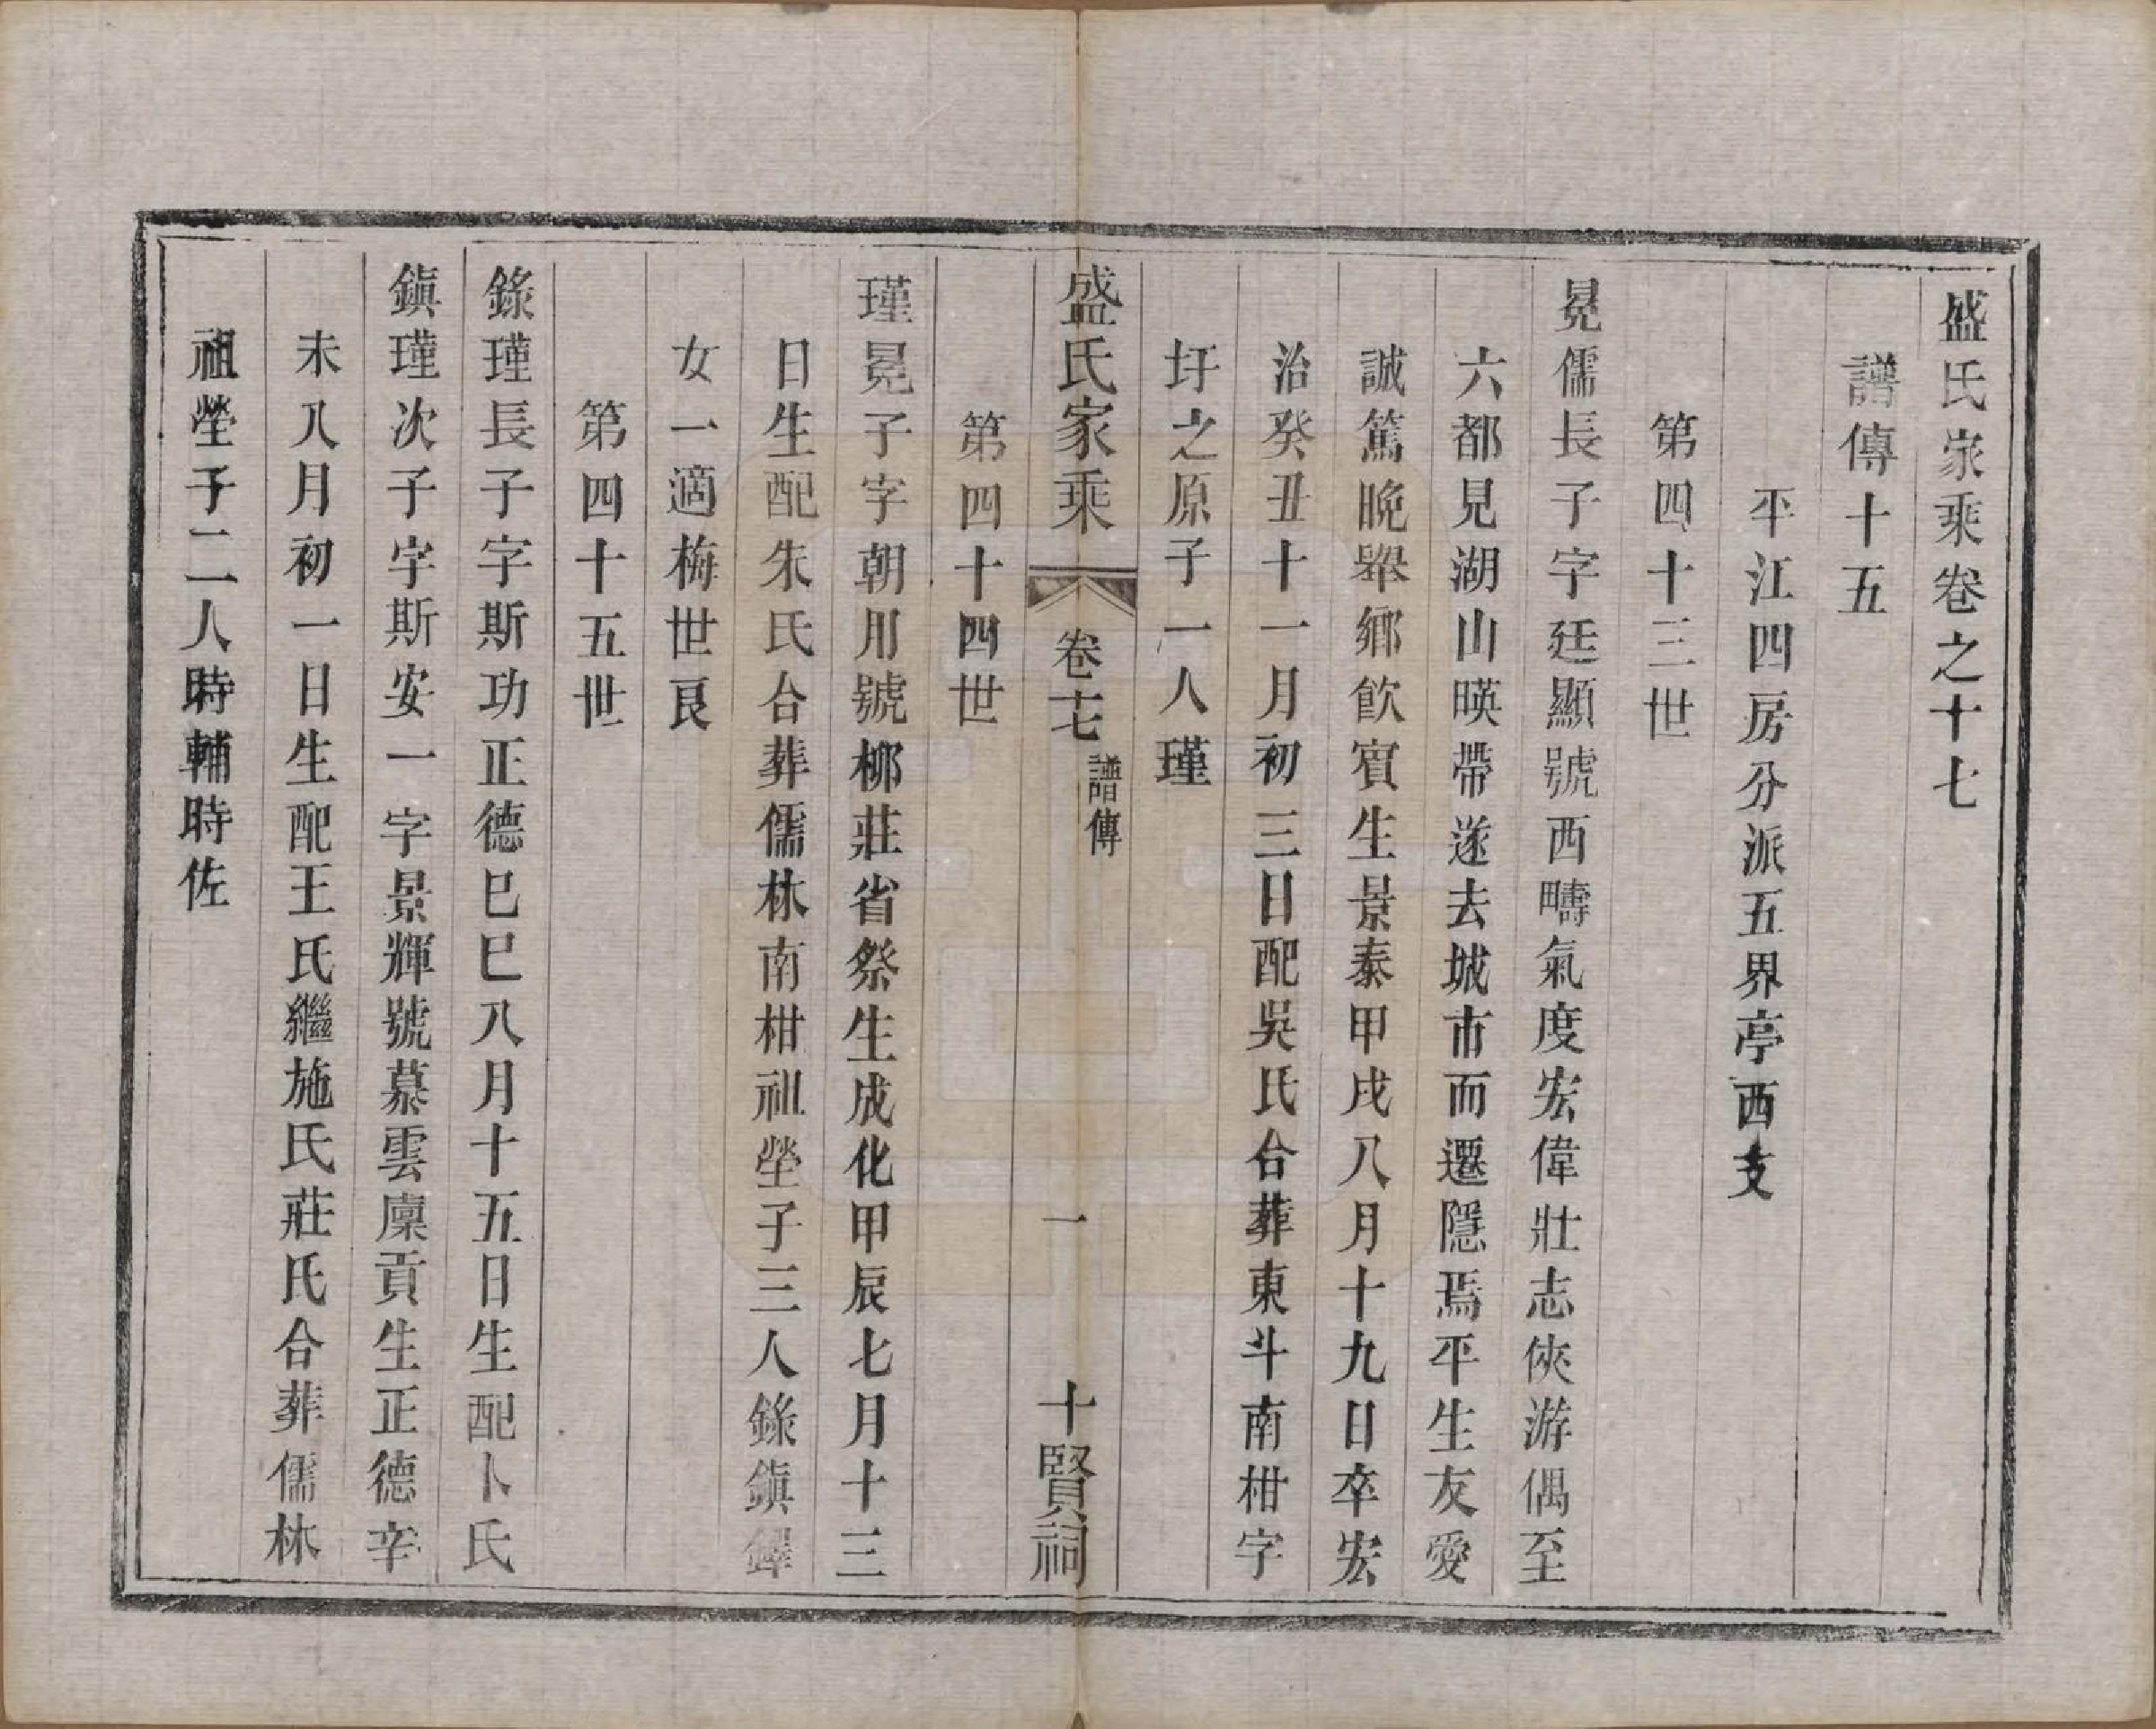 盛氏家乘卷之十七
譜傳十五
平江四房分派五界亭西支
第四十三世
冕儒長子字廷顯號西疇氣度宏偉壯志俠游偶至
六都見湖山暎帶遂去城市而遷隱焉平生友愛
誠篤晚舉鄉飲賓生景泰甲戌八月十九日卒宏
治癸丑十一月初三日配吳氏合葬東斗南柑字
圩之原子一人瑾
盛氏家乘 卷十七 譜傳 一 十賢祠
第四十四世
瑾冕子字朝用號柳莊省祭生成化甲辰七月十三
日生配朱氏合葬儒林南柑祖塋子三人錄鎮鐸
女一適梅世良
第四十五世
錄瑾長子字斯功正德巳巳八月十五日生配卜氏
鎮瑾次子字斯安一字景輝號慕雲廩貢生正德辛
未八月初一日生配王氏繼施氏莊氏合葬儒林
祖塋子二人時輔時佐